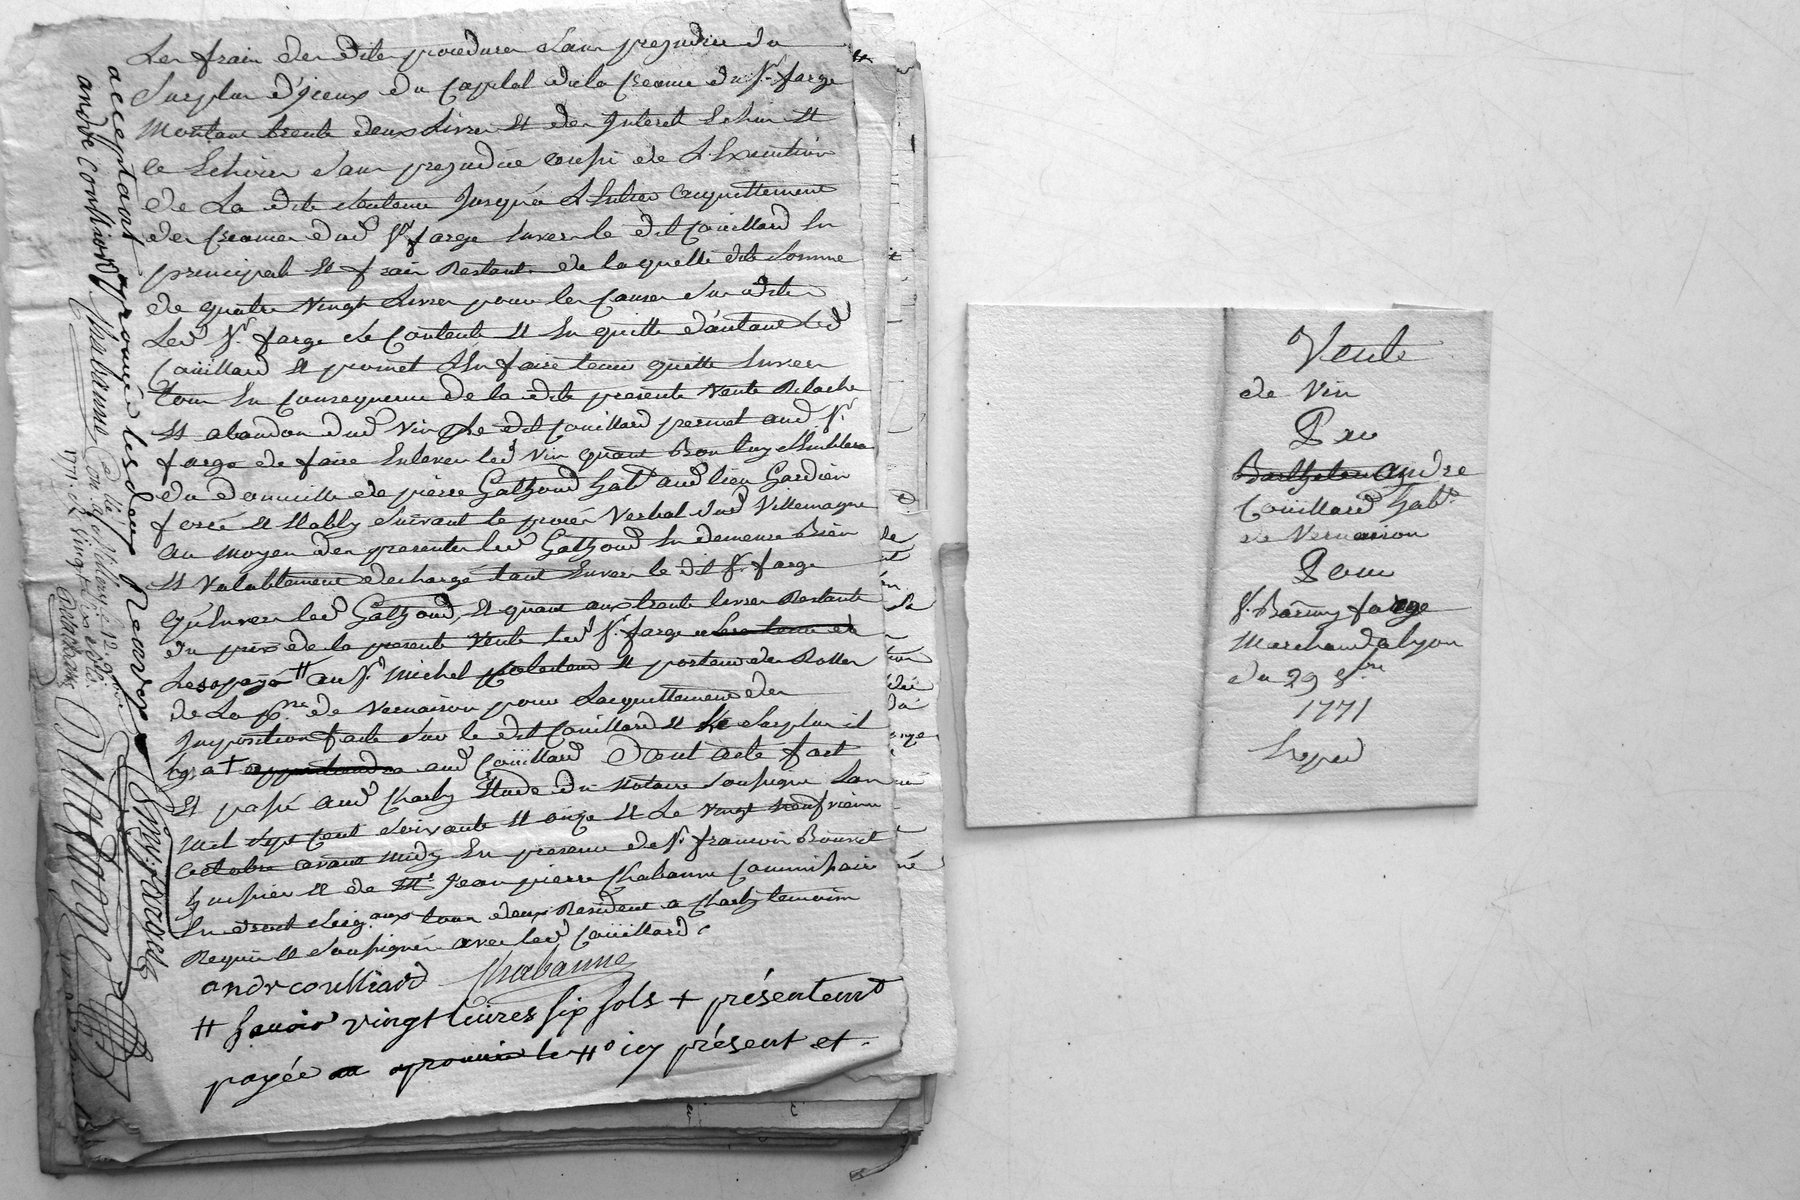 Les frais des dites procedures sans prejudice du
surplus d'jceux du capital de la creance du Sr. farge
montant trente deux Livres et des Interet Echus et
a Echoir sans prejudice aussi de L'Execution
de La dite sentence jusqu'a L'Entier acquittement
des creances dud. Sr. farge envers le dit Coüillard En
principal et frais Restants de laquelle dite somme
de quatre vingt Livres pour les causes sus dites
Led. Sr. farge se contente et En quitte d'autant led.
Coüillard et promet L'En faire tenir quitte Envers
tous En consequence de la dite presente vente Relache
et abandon dud. vin le dit Coüillard permet aud. Sr.
farge de faire Enlever led. vin quant Bon luy semblera
du domicille de pierre Gathoud hab. aud. lieu Gardien
forcé et Etably suivant le procès verbal dud. Villemagne
au moyen des presentes led. Gathoud En demeure Bien
et valablement dechargé tant Envers le dit Sr. farge
qu'Envers led. Gathoud, et quant aux trente livres Restante
du prix de la presente vente led. Sr. farge
Les a payé # au Sr. Michel et porteur des Rolles
de La psse. de Vernaison pour L'acquittement des
Impositions faite sur le dit Coüillard et Le surplus il
l'a + aud. Coüillard Dont acte fait
et passé aud. Charly Etude du Notaire soussigné L'an
mil sept cent soixante et onze et Le vingt neufvieme
octobre avant midy En presence de Sr. francois Bouvet
huissier et de Me. Jean pierre Chabanne Commissaire
En droit seig.aux tous deux Resident a Charly temoins
Requis et soussignés avec led. Coüillard
andr coulliard Chabanne
# Savoir vingt livres six sols + présentemt
payée ici présent et
acceptant approuvé les deux Renvoys
andré coulliard Chabanne
Con.lé a Millery le 12. 9bre
1771. Rx vingt six sols.
Vente
de Vin
Par
Barthelemy andre
Coüillard hab.t
de Vernaison
Pour
Sr. Barmy farge
Marchand a lyon
du 29 8bre
1771
Exped